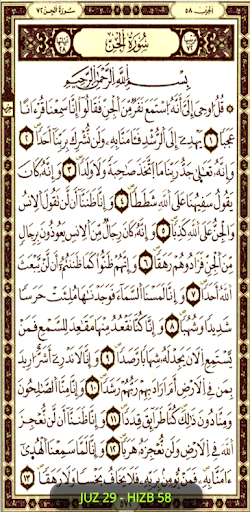 الحزب ٥٨
سُورَةُ الجِنّ ٧٢
سُورَةُ الجِنّ
بِسْمِ ٱللَّهِ ٱلرَّحْمَٰنِ ٱلرَّحِيمِ
قُلْ أُوحِىَ إِلَىَّ أَنَّهُ ٱسْتَمَعَ نَفَرٌ مِّنَ ٱلْجِنِّ فَقَالُوٓا۟ إِنَّا سَمِعْنَا قُرْءَانًا
عَجَبًا ١ يَهْدِىٓ إِلَى ٱلرُّشْدِ فَـَٔامَنَّا بِهِۦ وَلَن نُّشْرِكَ بِرَبِّنَآ أَحَدًا ٢
وَأَنَّهُۥ تَعَٰلَىٰ جَدُّ رَبِّنَا مَا ٱتَّخَذَ صَٰحِبَةً وَلَا وَلَدًا ٣ وَأَنَّهُۥ كَانَ
يَقُولُ سَفِيهُنَا عَلَى ٱللَّهِ شَطَطًا ٤ وَأَنَّا ظَنَنَّآ أَن لَّن تَقُولَ ٱلْإِنسُ
وَٱلْجِنُّ عَلَى ٱللَّهِ كَذِبًا ٥ وَأَنَّهُۥ كَانَ رِجَالٌ مِّنَ ٱلْإِنسِ يَعُوذُونَ بِرِجَالٍ
مِّنَ ٱلْجِنِّ فَزَادُوهُمْ رَهَقًا ٦ وَأَنَّهُمْ ظَنُّوا۟ كَمَا ظَنَنتُمْ أَن لَّن يَبْعَثَ
ٱللَّهُ أَحَدًا ٧ وَأَنَّا لَمَسْنَا ٱلسَّمَآءَ فَوَجَدْنَٰهَا مُلِئَتْ حَرَسًا
شَدِيدًا وَشُهُبًا ٨ وَأَنَّا كُنَّا نَقْعُدُ مِنْهَا مَقَٰعِدَ لِلسَّمْعِ فَمَن
يَسْتَمِعِ ٱلْـَٔانَ يَجِدْ لَهُۥ شِهَابًا رَّصَدًا ٩ وَأَنَّا لَا نَدْرِىٓ أَشَرٌّ أُرِيدَ
بِمَن فِى ٱلْأَرْضِ أَمْ أَرَادَ بِهِمْ رَبُّهُمْ رَشَدًا ١٠ وَأَنَّا مِنَّا ٱلصَّٰلِحُونَ
وَمِنَّا دُونَ ذَٰلِكَ كُنَّا طَرَآئِقَ قِدَدًا ١١ وَأَنَّا ظَنَنَّآ أَن لَّن نُّعْجِزَ
ٱللَّهَ فِى ٱلْأَرْضِ وَلَن نُّعْجِزَهُۥ هَرَبًا ١٢ وَأَنَّا لَمَّا سَمِعْنَا ٱلْهُدَىٰٓ
ءَامَنَّا بِهِۦ فَمَن يُؤْمِنۢ بِرَبِّهِۦ فَلَا يَخَافُ بَخْسًا وَلَا رَهَقًا ١٣
JUZ 29 - HIZB 58